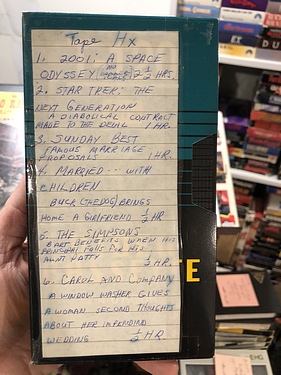 Tape Hx
1. 2001: A SPACE
ODYSSEY 2 1/2 HRS.
2. STAR TREK: THE
NEXT GENERATION
A DIABOLICAL CONTRACT
MADE TO THE DEVIL 1 HR.
3. SUNDAY BEST
FAMOUS MARRIAGE
PROPOSALS 1 HR.
4. MARRIED... WITH
CHILDREN
BUCK (THE DOG) BRINGS
HOME A GIRLFRIEND 1/2 HR
5. THE SIMPSONS
BART BENEFITS WHEN HIS
PRINCIPAL FALLS FOR HIS
AUNT PATTY 1/2 HR.
6. CAROL AND COMPANY
A WINDOW WASHER GIVES
A WOMAN SECOND THOUGHTS
ABOUT HER IMPENDING
WEDDING 1/2 HR
TE